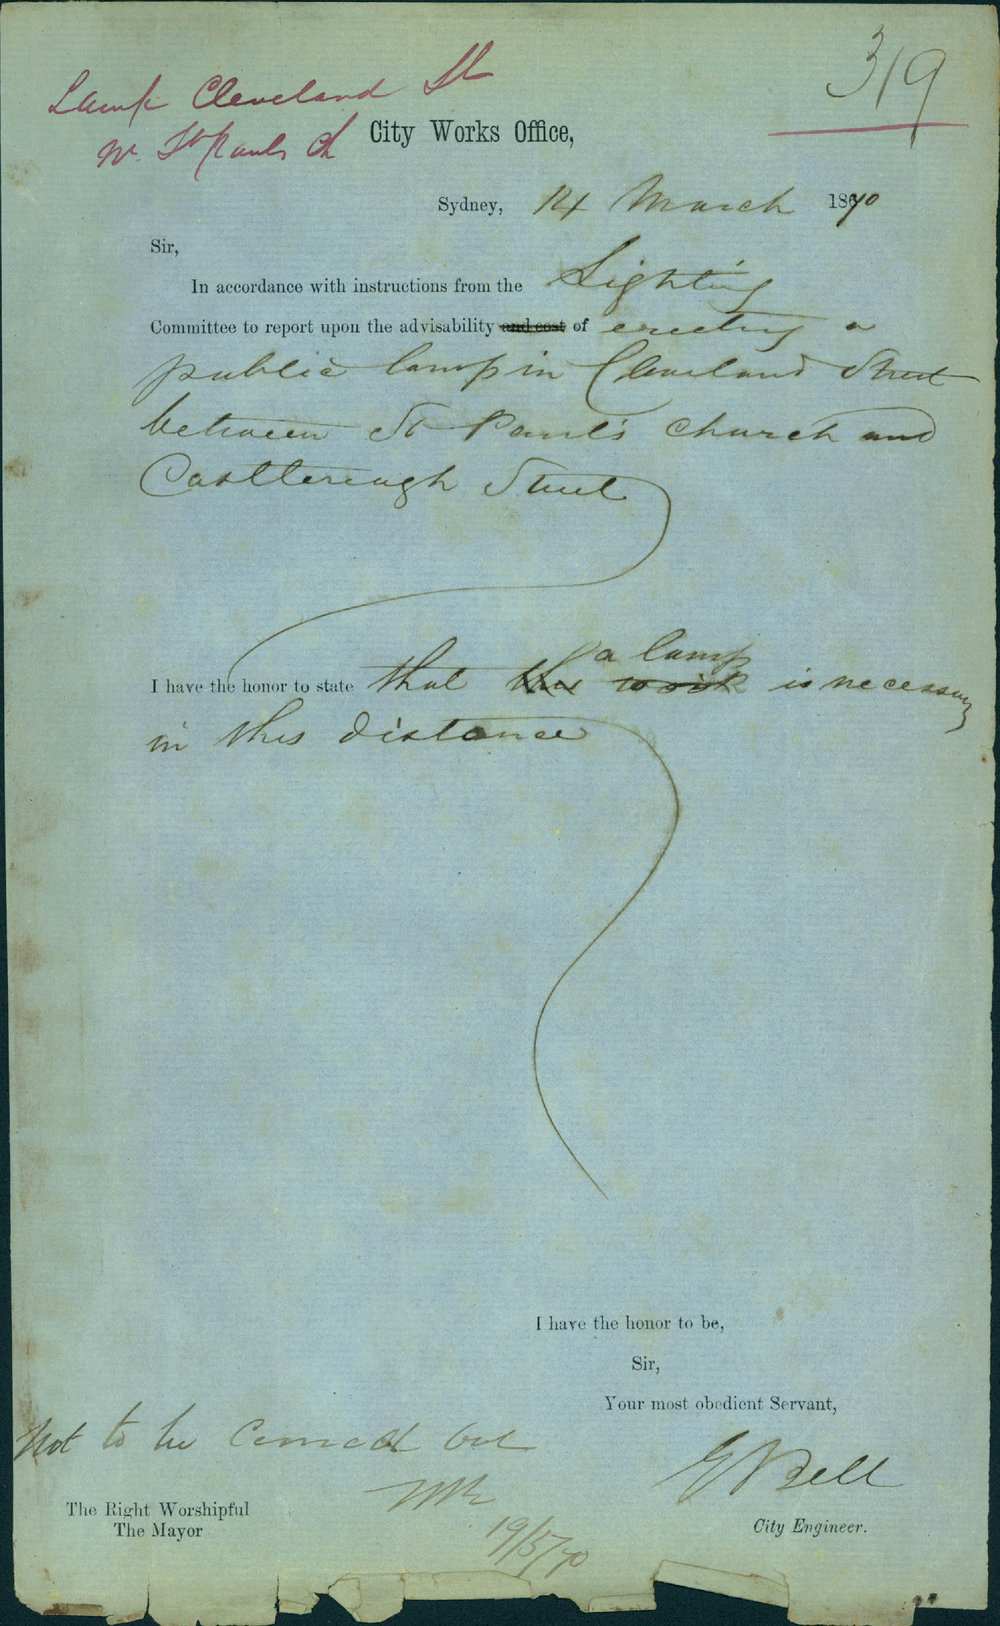 319
Lamp Cleveland St
nr. St Pauls Ch
City Works Office,
Sydney, 14 March 1870
Sir,
In accordance with instructions from the Lighting
Committee to report upon the advisability and cost of erecting a
public lamp in Cleveland Street
between St Paul's church and
Castlereagh Street
a lamp
I have the honor to state that the work is necessary
in this distance
I have the honor to be,
Sir,
Your most obedient Servant,
Not to be carried out
E Bell
The Right Worshipful
The Mayor
City Engineer.
19/5/70